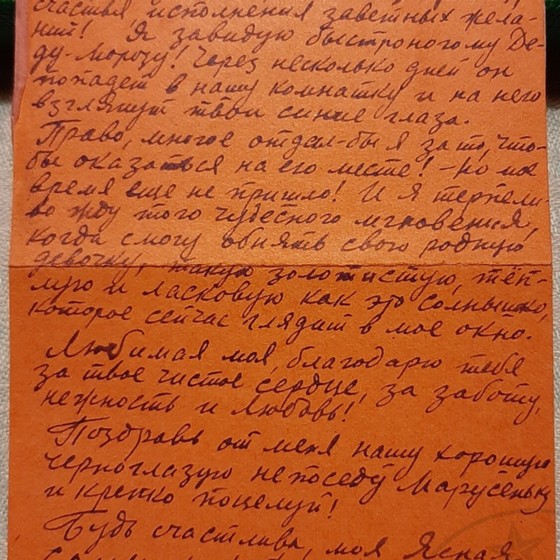 счастья, исполнения заветных жела-
ний! Я завидую быстроногому Де-
ду-Морозу! Через несколько дней он
попадет в нашу комнатку и на него
взглянут твои синие глаза.
Право, многое отдал-бы я за то, что-
бы оказаться на его месте! Но мое
время еще не пришло! И я терпели-
во жду того чудесного мгновения,
когда смогу обнять свою родную
девочку, такую золотистую, тёп-
лую и ласковую как это солнышко,
которое сейчас глядит в мое окно.
Любимая моя, благодарю тебя
за твое чистое сердце, за заботу,
нежность и любовь!
Поздравь от меня нашу хорошую
черноглазую непоседу Марусеньку
и крепко поцелуй!
Будь счастлива, моя Ясная